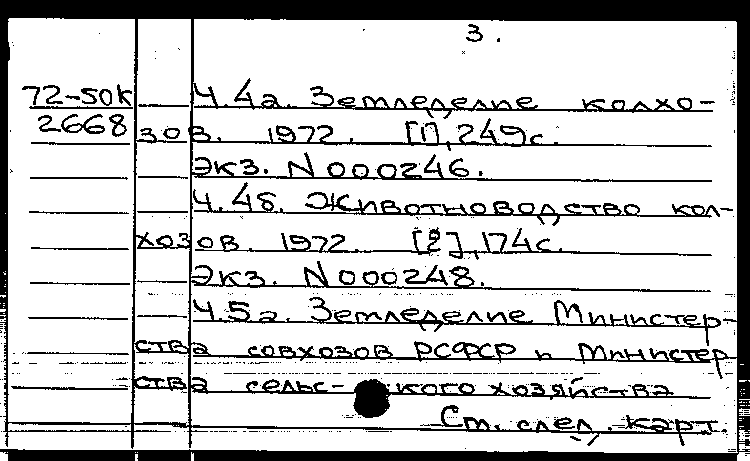 3.
72-50к Ч.4а. Земледелие колхо-
2668 зов. 1972. [1], 249с.
Экз. N 000246.
Ч.4б. Животноводство кол-
хозов. 1972. [2], 174с.
Экз. N 000248.
Ч.5а. Земледелие Министер-
ства совхозов РСФСР и Министер
ства сельс- кого хозяйства
См. след. карт.